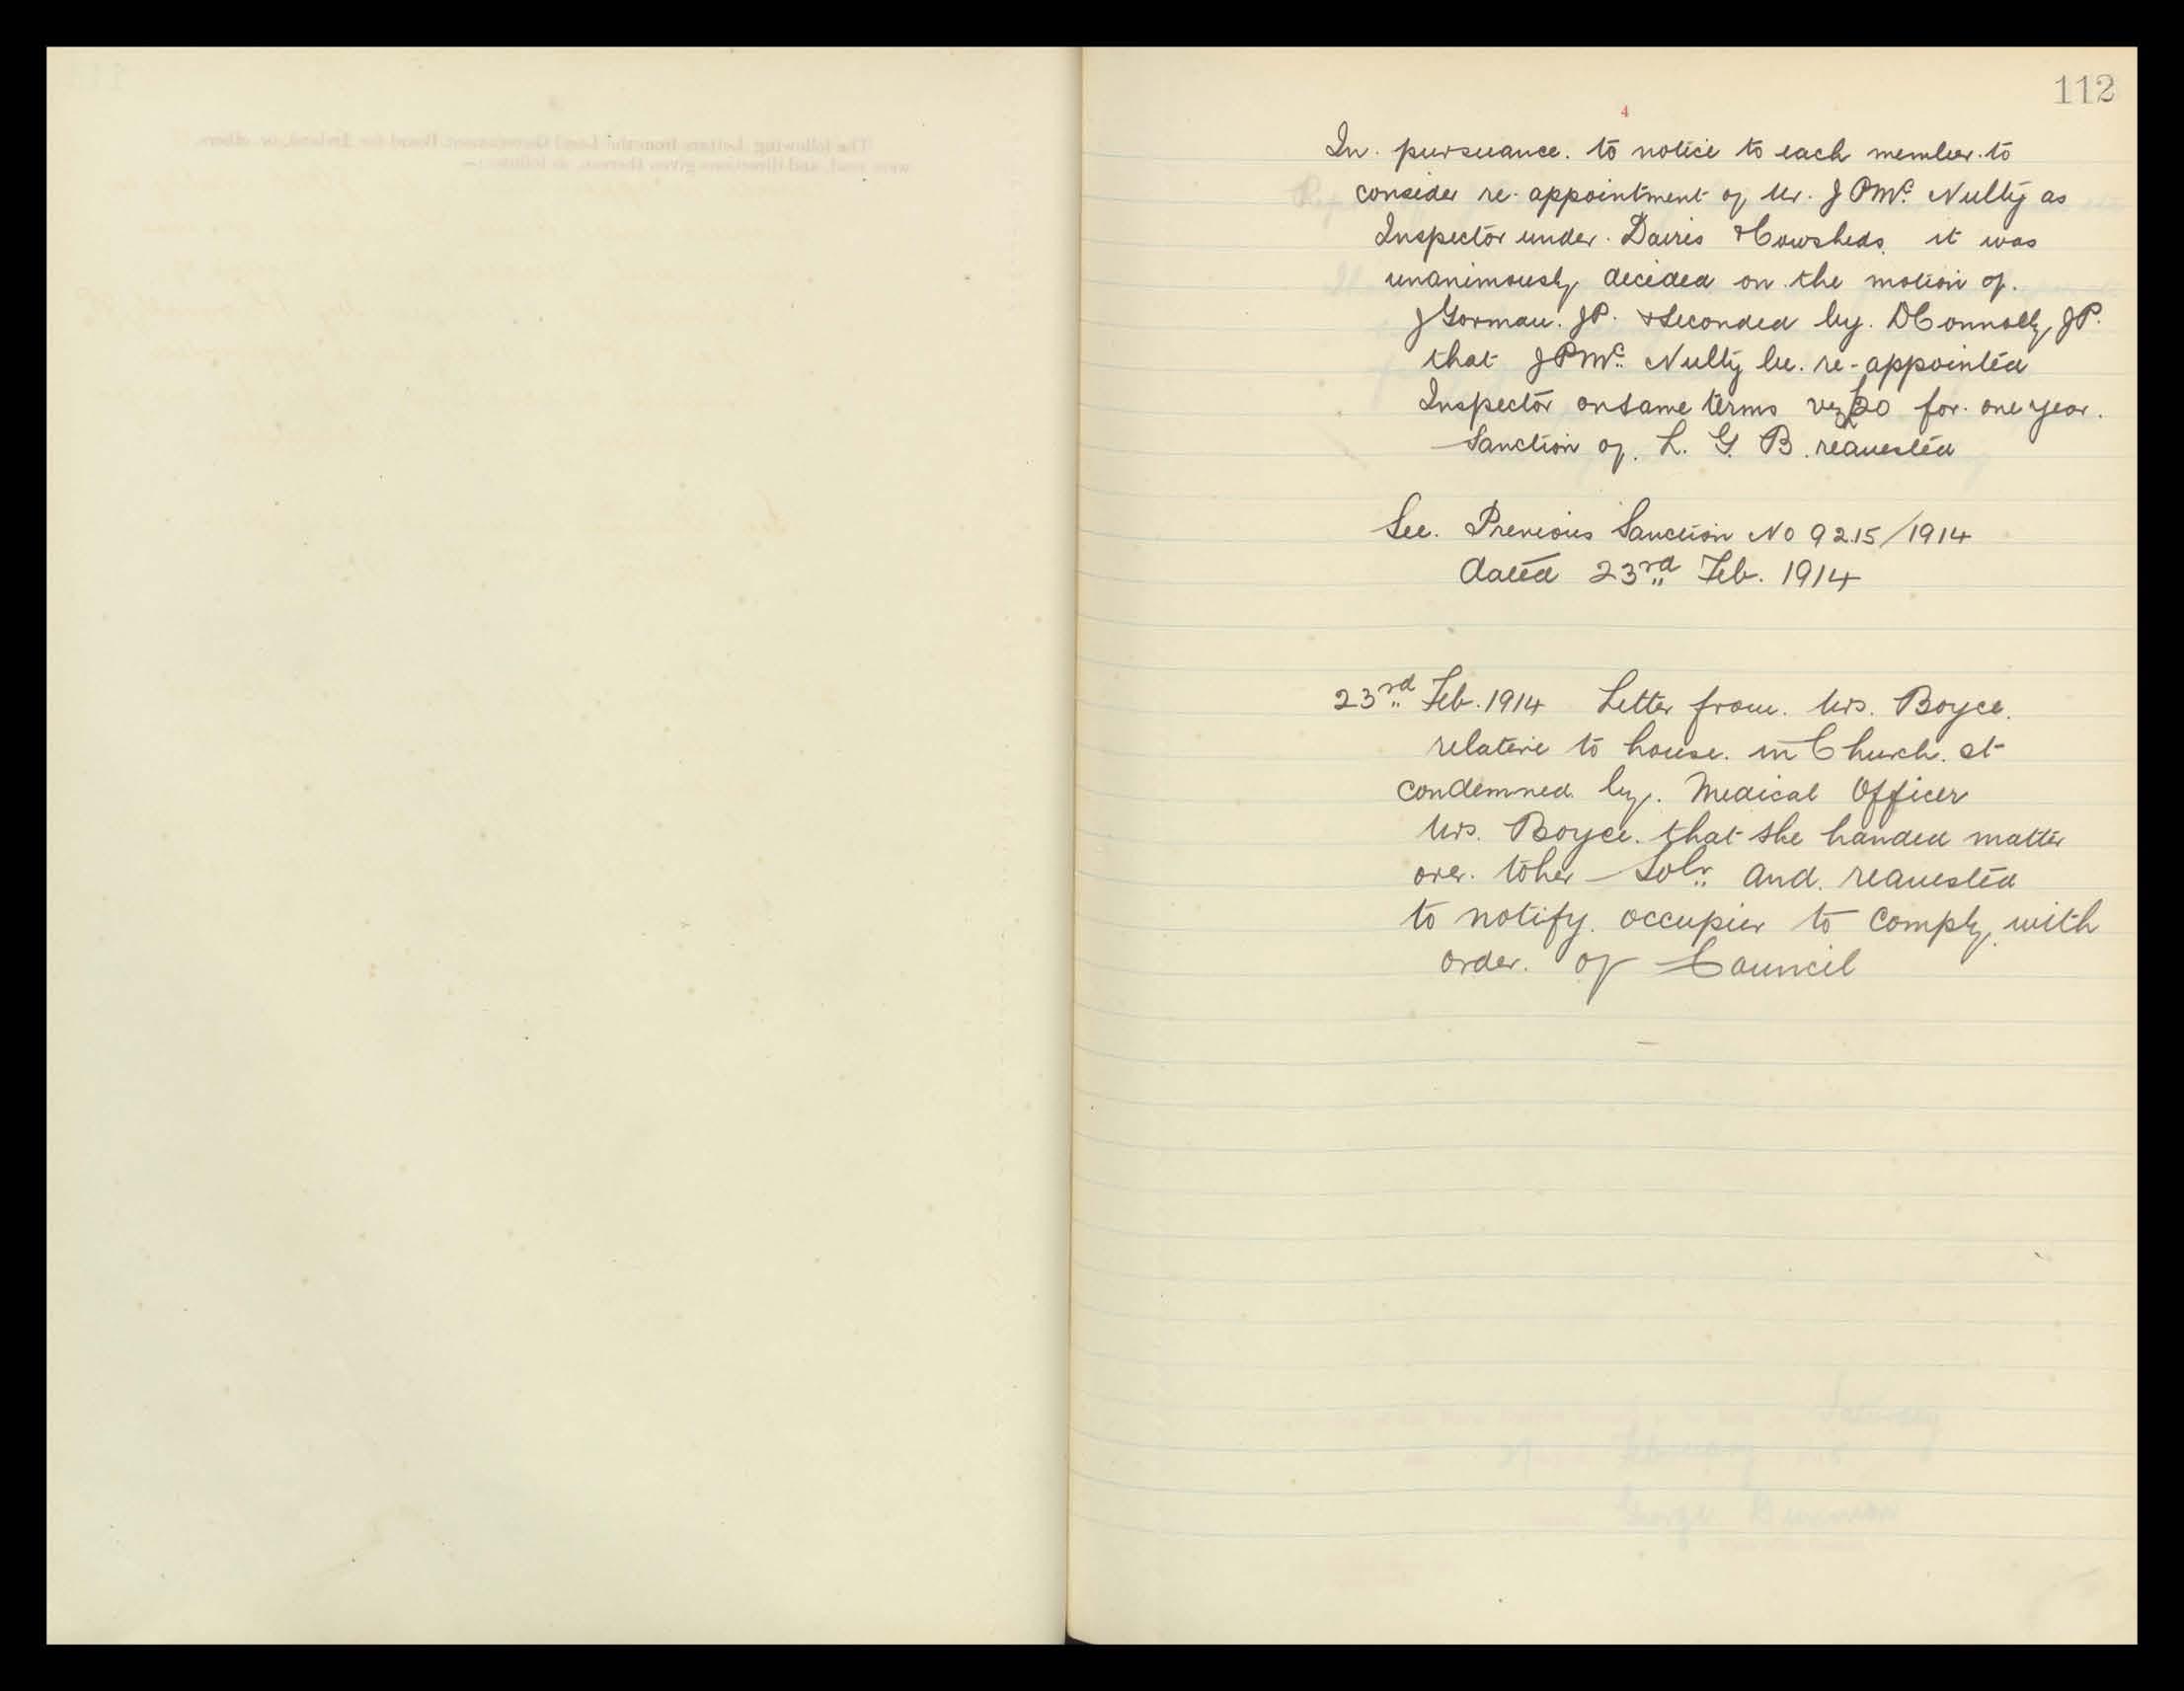 112
4
In pursuance. to notice to each member to
consider re-appointment of Mr. J P Mc. Nulty as
Inspector under. Dairies & Cowsheds. it was
unanimously decided on the motion of.
J Gorman. JP. & Seconded by. D Connolly, JP.
that J P Mc. Nulty be. re-appointed
Inspector on same terms viz £20 for one year.
Sanction of. L. G. B. requested
See. Previous Sanction No 9215/1914
dated 23rd Feb. 1914
23rd Feb. 1914 Letter from. Mrs. Boyce.
relative to house. in Church. St
condemned by. Medical Officer
Mrs. Boyce. that she handed matter
over. to her Solr. and. requested
to notify. occupier to comply, with
order. of Council